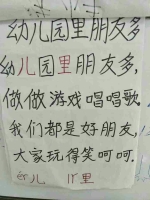 幼儿园里朋友多
幼儿园里朋友多,
做做游戏唱唱歌
我们都是好朋友,
大家玩得笑呵呵.
幼儿 里